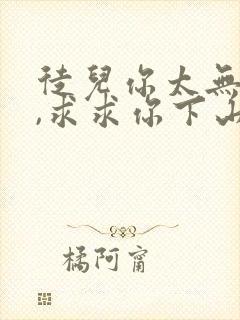 徒兒你太無
,求求你下山
橘阿甯